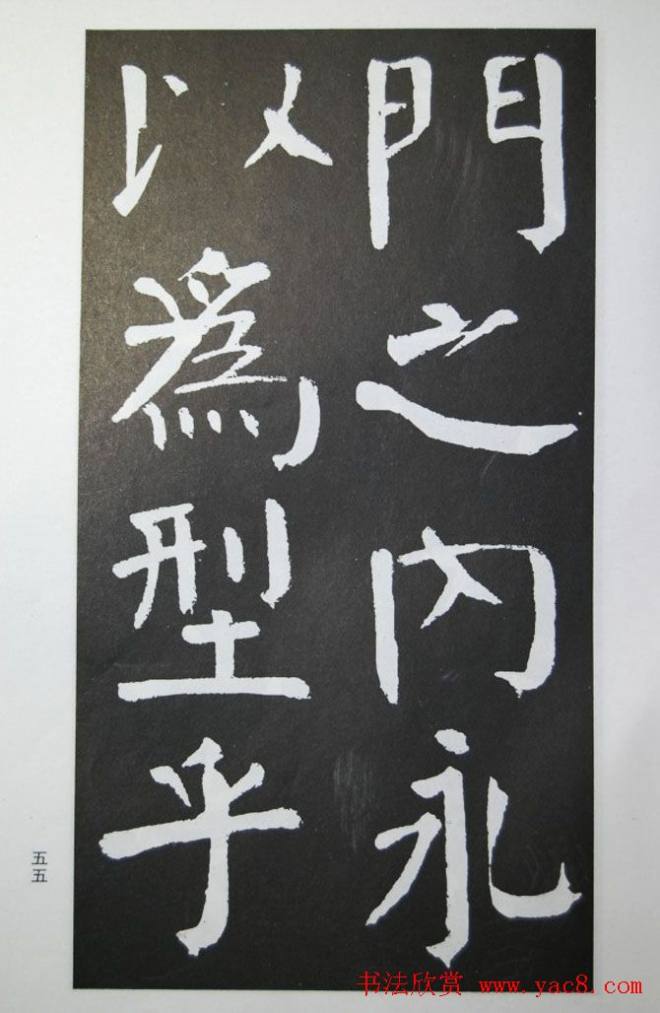 門之内永
以爲型乎
五五
书法欣赏 www.yac8.com